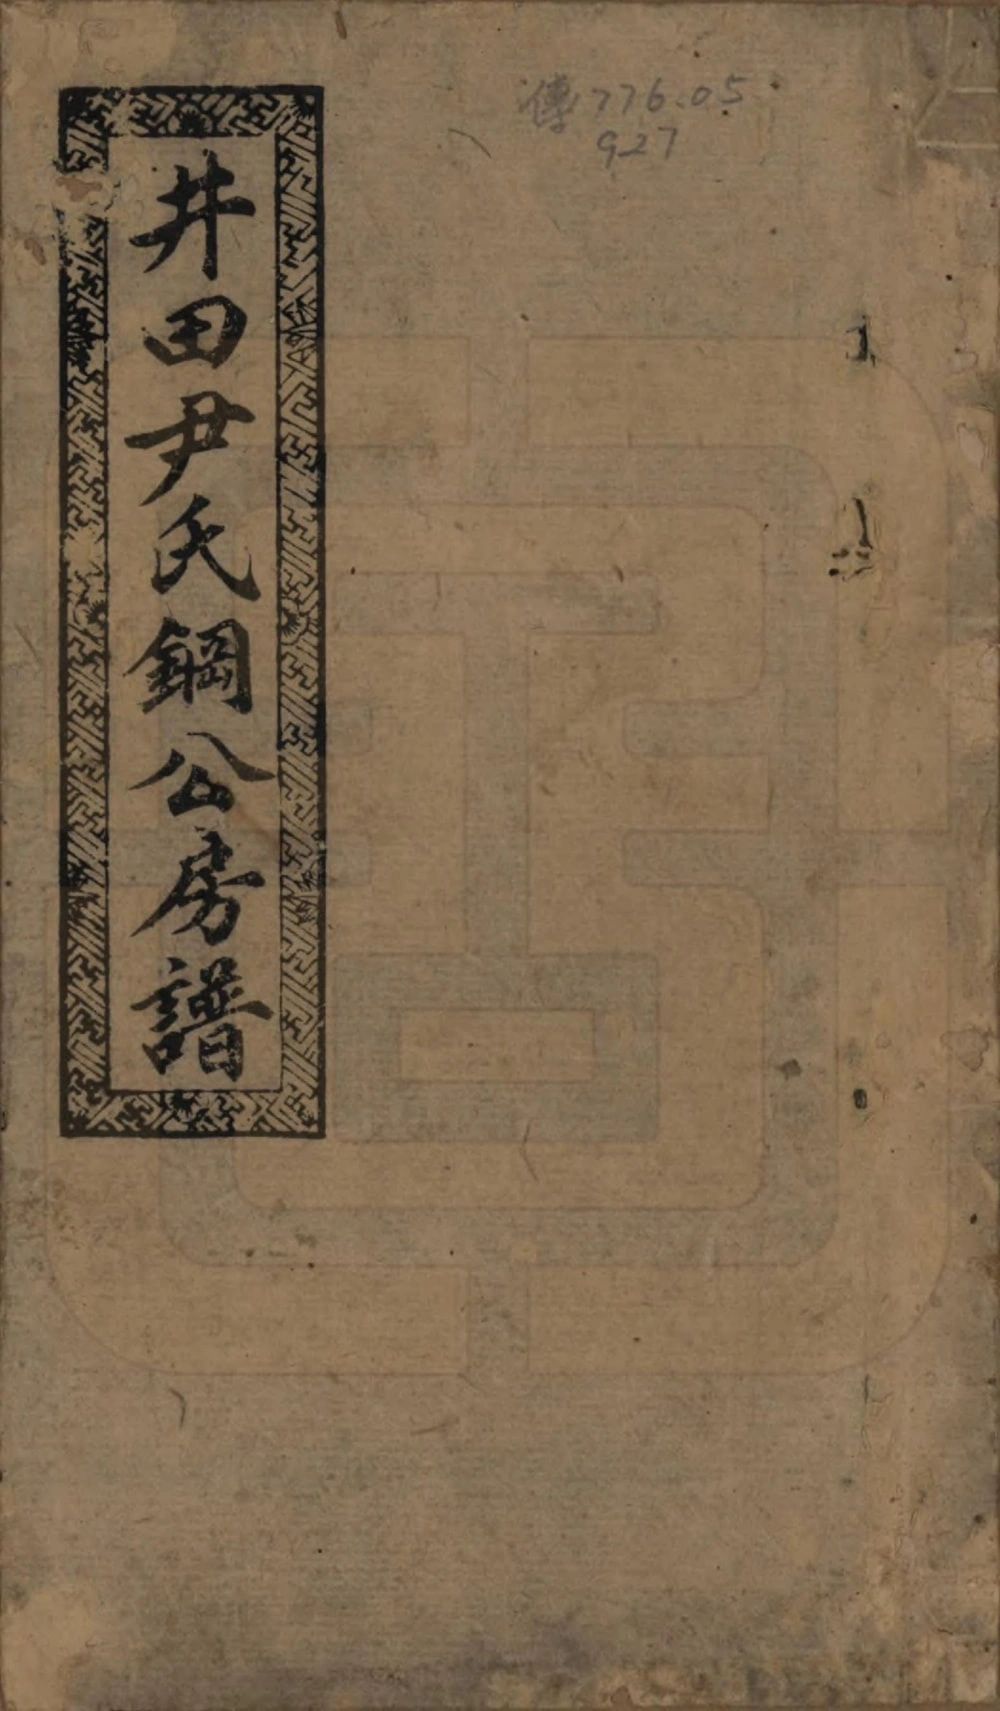 井田尹氏鋼公房譜
傳776.05
927